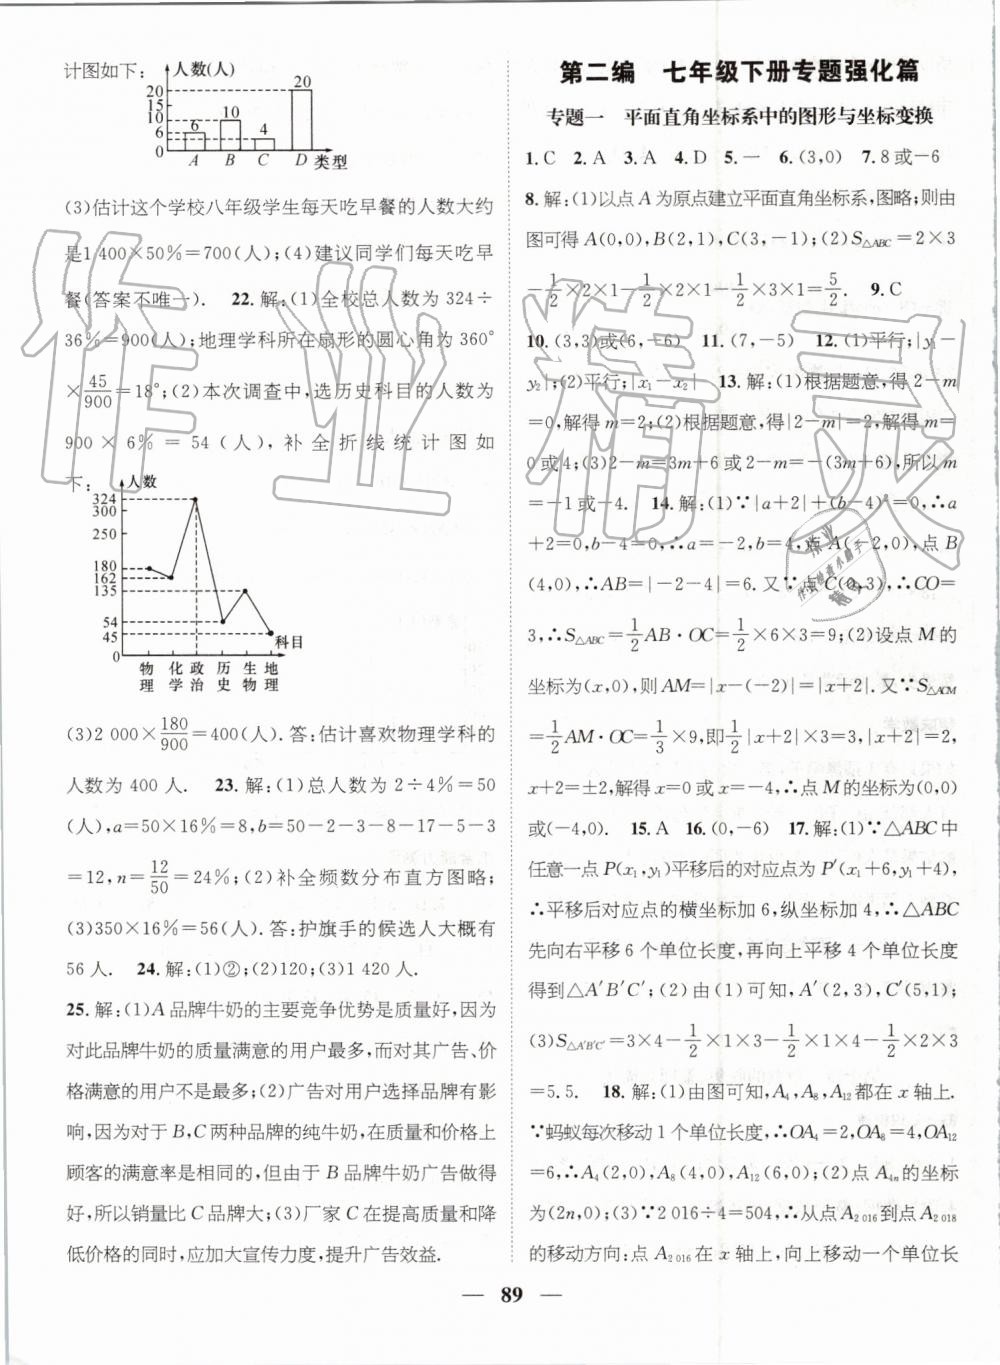 计图如下:
人数(人)
20
20
15
10
10
6
5
4
0
A B C D 类型
(3)估计这个学校八年级学生每天吃早餐的人数大约
是1 400×50%=700(人);(4)建议同学们每天吃早
餐(答案不唯一). 22.解:(1)全校总人数为 324÷
36%=900(人);地理学科所在扇形的圆心角为 360°
×45/900=18°;(2)本次调查中,选历史科目的人数为
900 × 6% = 54 (人),补全折线统计图如
下:
人数
324
300
250
180
162
135
54
45
0
科目
物理 化学 政治 历史 生物 地理
(3)2 000×180/900=400(人).答:估计喜欢物理学科的
人数为 400 人. 23.解:(1)总人数为 2÷4%=50
(人),a=50×16%=8,b=50-2-3-8-17-5-3
=12,n=12/50=24%;(2)补全频数分布直方图略;
(3)350×16%=56(人).答:护旗手的候选人大概有
56 人. 24.解:(1)②;(2)120;(3)1 420 人.
25.解:(1)A 品牌牛奶的主要竞争优势是质量好,因为
对此品牌牛奶的质量满意的用户最多,而对其广告、价
格满意的用户不是最多;(2)广告对用户选择品牌有影
响,因为对于 B,C 两种品牌的纯牛奶,在质量和价格上
顾客的满意率是相同的,但由于 B 品牌牛奶广告做得
好,所以销量比 C 品牌大;(3)厂家 C 在提高质量和降
低价格的同时,应加大宣传力度,提升广告效益.
第二编 七年级下册专题强化篇
专题一 平面直角坐标系中的图形与坐标变换
1.C 2.A 3.A 4.D 5.一 6.(3,0) 7.8 或-6
8.解:(1)以点 A 为原点建立平面直角坐标系,图略;则由
图可得 A(0,0),B(2,1),C(3,-1);(2)S△ABC=2×3
-1/2×2×1-1/2×2×1-1/2×3×1=5/2. 9.C
10.(3,3)或(6,-6) 11.(7,-5) 12.(1)平行;|y₁-
y₂|;(2)平行;|x₁-x₂| 13.解:(1)根据题意,得 2-m
=0,解得 m=2;(2)根据题意,得|2-m|=2,解得 m=
0或4;(3)2-m=3m+6或2-m=-(3m+6),所以 m
=-1或-4. 14.解:(1)∵|a+2|+(b-4)²=0,∴a
+2=0,b-4=0,∴a=-2,b=4,点 A(-2,0),点 B
(4,0),∴AB=|-2-4|=6.又∵点C(0,3),∴CO=
3,∴S△ABC=1/2AB·OC=1/2×6×3=9;(2)设点 M 的
坐标为(x,0),则 AM=|x-(-2)|=|x+2|.又∵S△ACM
=1/2AM·OC=1/3×9,即1/2|x+2|×3=3,∴|x+2|=2,
x+2=±2,解得 x=0 或 x=-4,∴点 M 的坐标为(0,0)
或(-4,0). 15.A 16.(0,-6) 17.解:(1)∵△ABC中
任意一点 P(x₁,y₁)平移后的对应点为 P′(x₁+6,y₁+4),
∴平移后对应点的横坐标加 6,纵坐标加 4,∴△ABC
先向右平移 6 个单位长度,再向上平移 4 个单位长度
得到△A′B′C′;(2)由(1)可知,A′(2,3),C′(5,1);
(3)S△A′B′C′=3×4-1/2×1×3-1/2×1×2-1/2×2×3
=5.5. 18.解:(1)由图可知,A₄,A₈,A₁₂都在 x 轴上.
∵蚂蚁每次移动 1 个单位长度,∴OA₄=2,OA₈=4,OA₁₂
=6,∴A₄(2,0),A₈(4,0),A₁₂(6,0);(2)点 A₄ₙ的坐标
为(2n,0);(3)∵2 016÷4=504,∴从点 A₂₀₁₆到点 A₂₀₁₈
的移动方向:点 A₂₀₁₆在 x 轴上,向上移动一个单位长
— 89 —
作业精灵